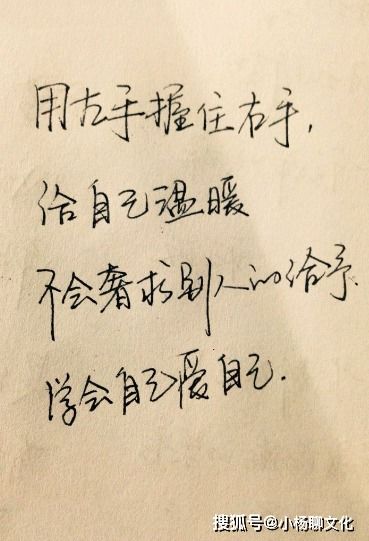 用左手握住右手,
给自己温暖
不会奢求别人的给予
学会自己爱自己.
搜狐号@小杨聊文化